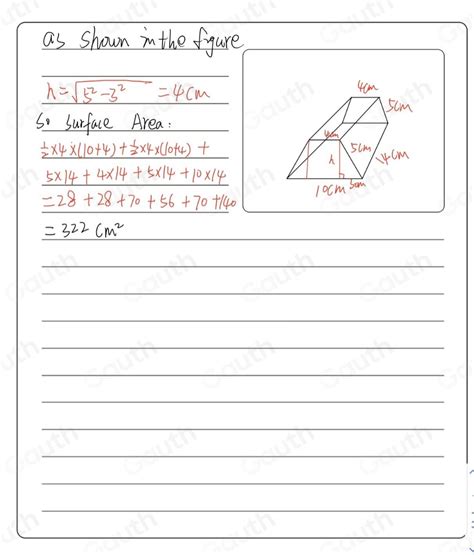 as shown in the figure
h = √5² - 3² = 4cm
So surface Area:
½×4×(10+4) + ½×4×(10+4) +
5×14 + 4×14 + 5×14 + 10×14
= 28 + 28 + 70 + 56 + 70 + 140
= 322 cm²
4cm
5cm
4cm
5cm
h
14cm
10cm
3cm
Gauth